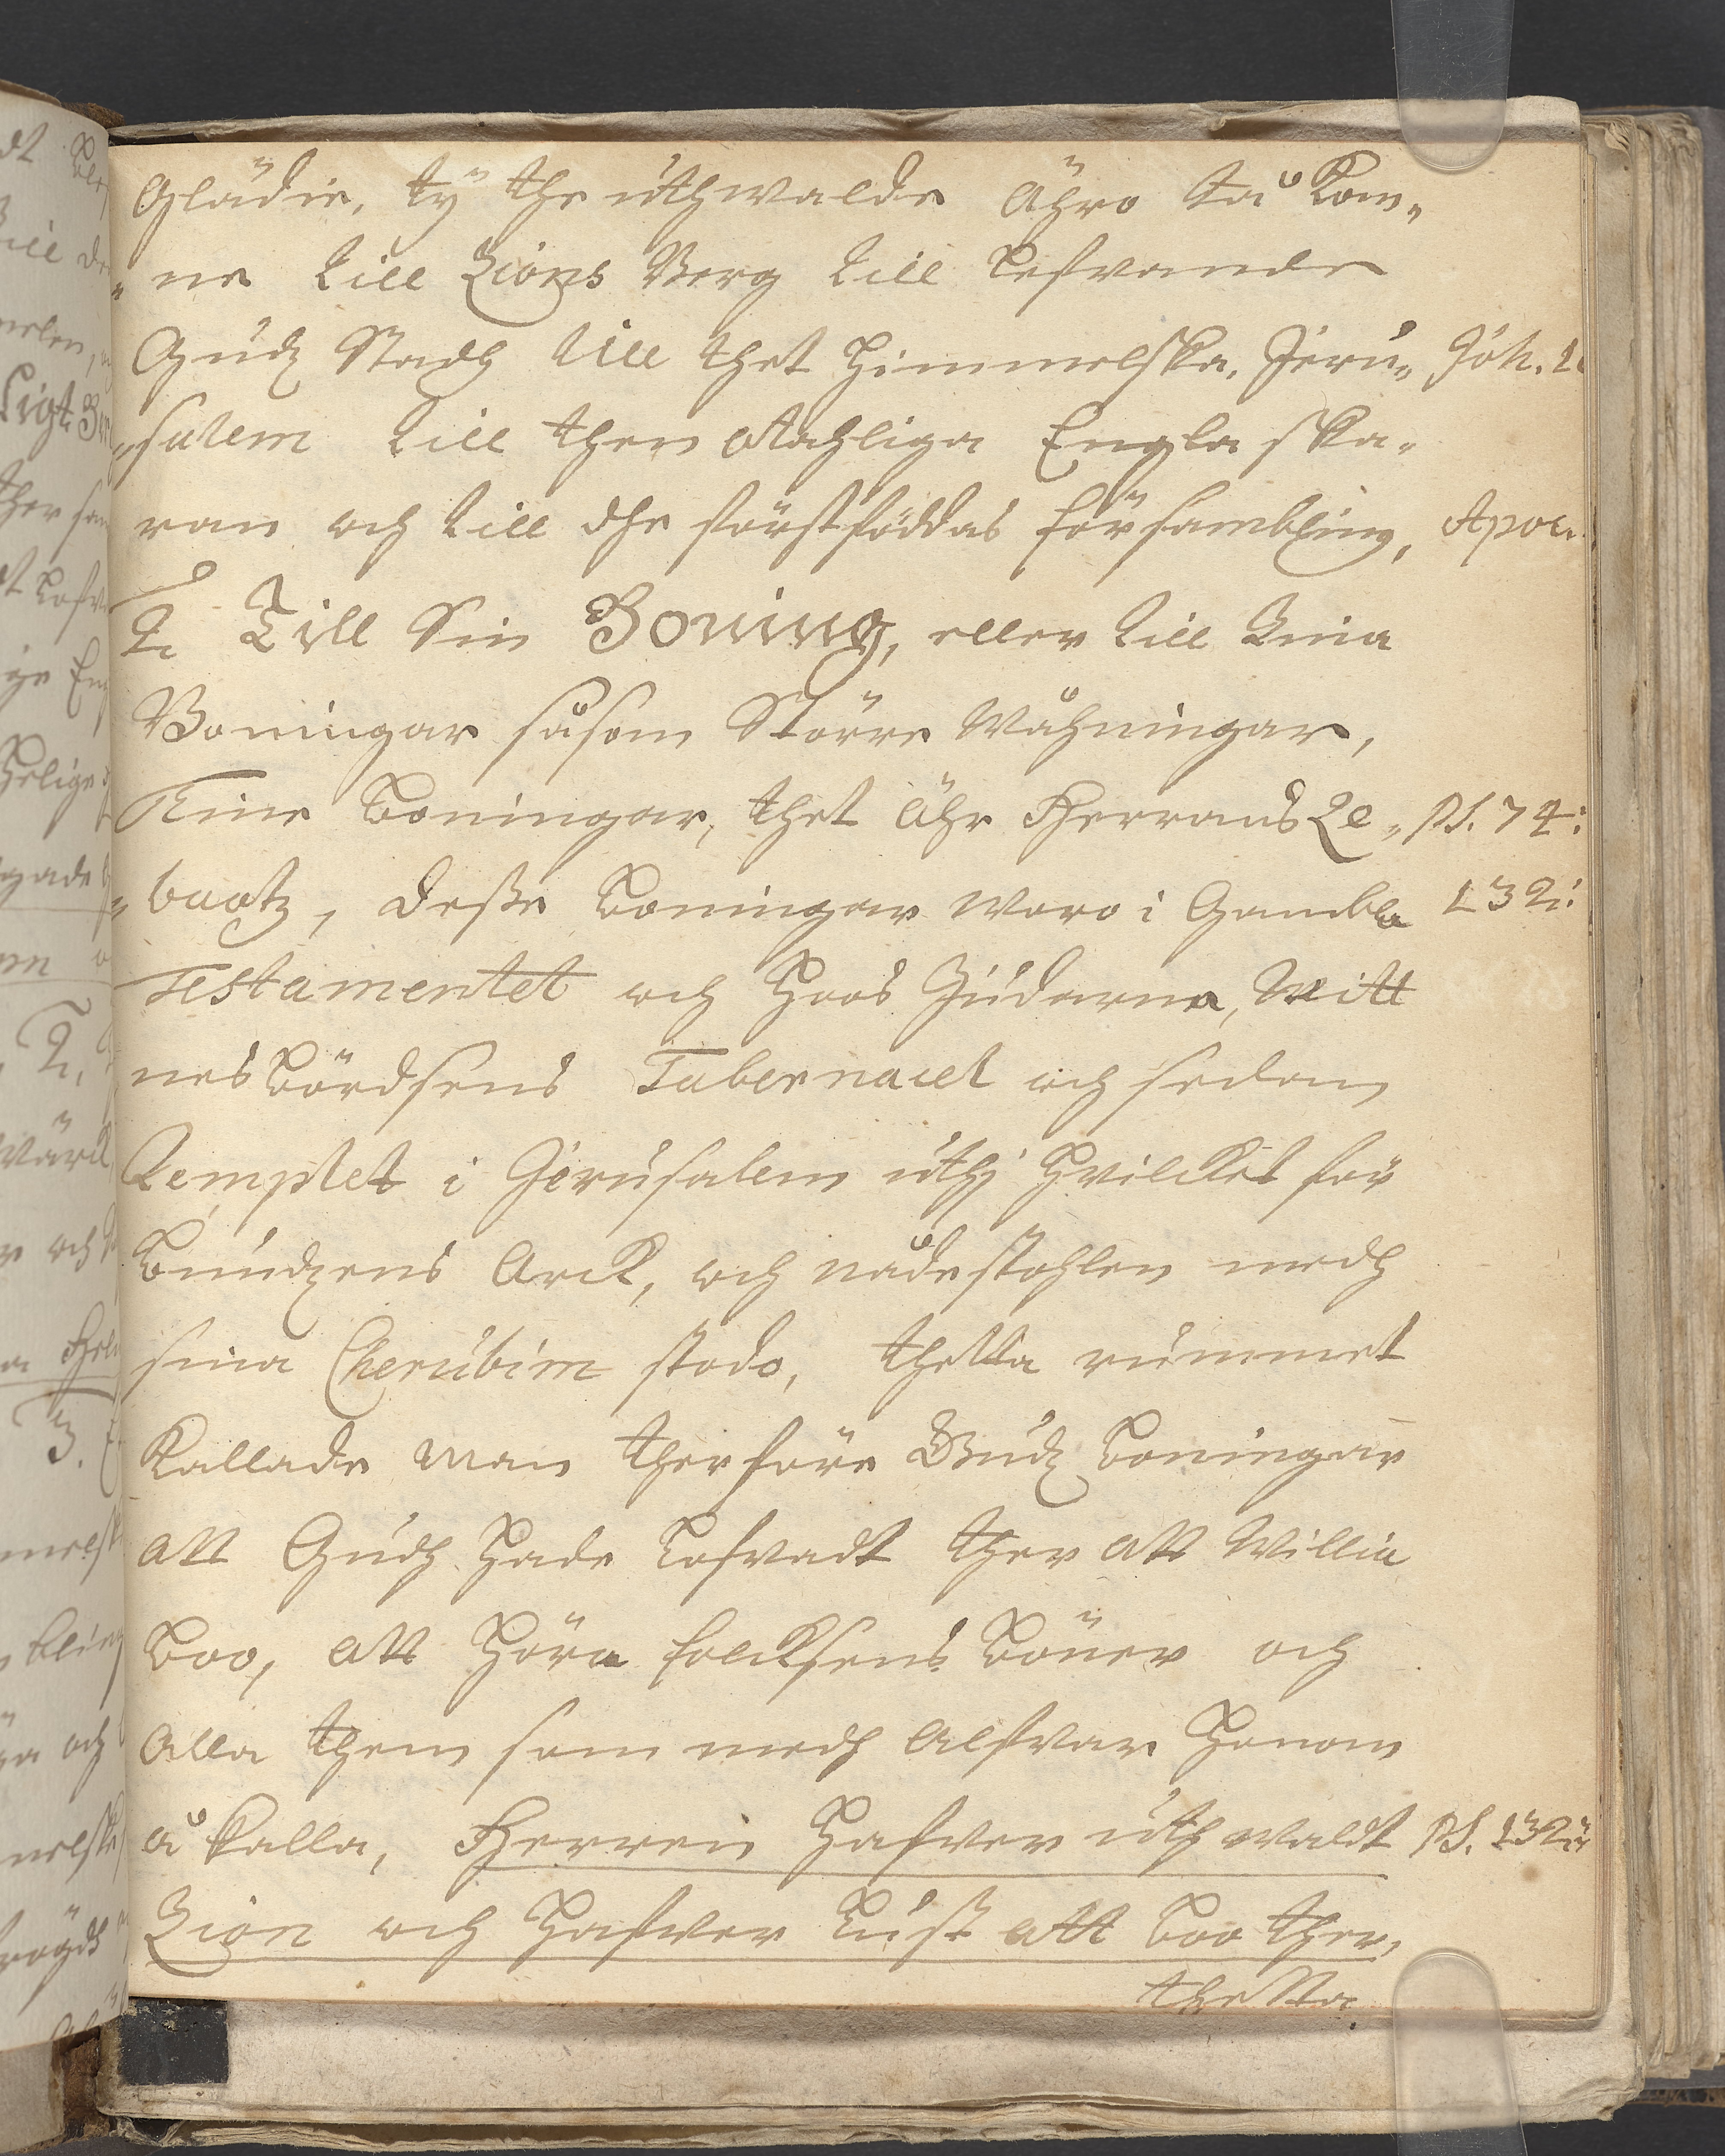 Glädie, tÿ the uthwalde ähro så kom„
„ne till Zions Berg till lefvande
Gudz Stadh till thet himmelska. Jeru„ Joh. 1
„salem till then otahliga Engla ska„
ran och till the förstföddas försambling, Apoc.
2. Till Sin Boning, eller till Sina
Boningar såsom Större Wåhningar,
Tine boningar, thet ähr Herrans Ze„ Ps. 74:
„baotz, deße boningar woro i Gambla 132:
Testamentet och hoos Judarna, Witt
nesbördsens Tabernacel och sedan
templet i Jerusalem uthj hvilcket för
bundzens Arck, och nådestohlen medh
sina Cherubim stodo, thetta rummet
kallade man therföre Gudz boningar
att Gudh hade lofvadt ther att Willia
boo, att höra folcksens böner och
alla them som medh alfvar honom
åkalla, Herren hafver uthwaldt Ps. 132:
Zion och hafver lust att boo ther,
thetta